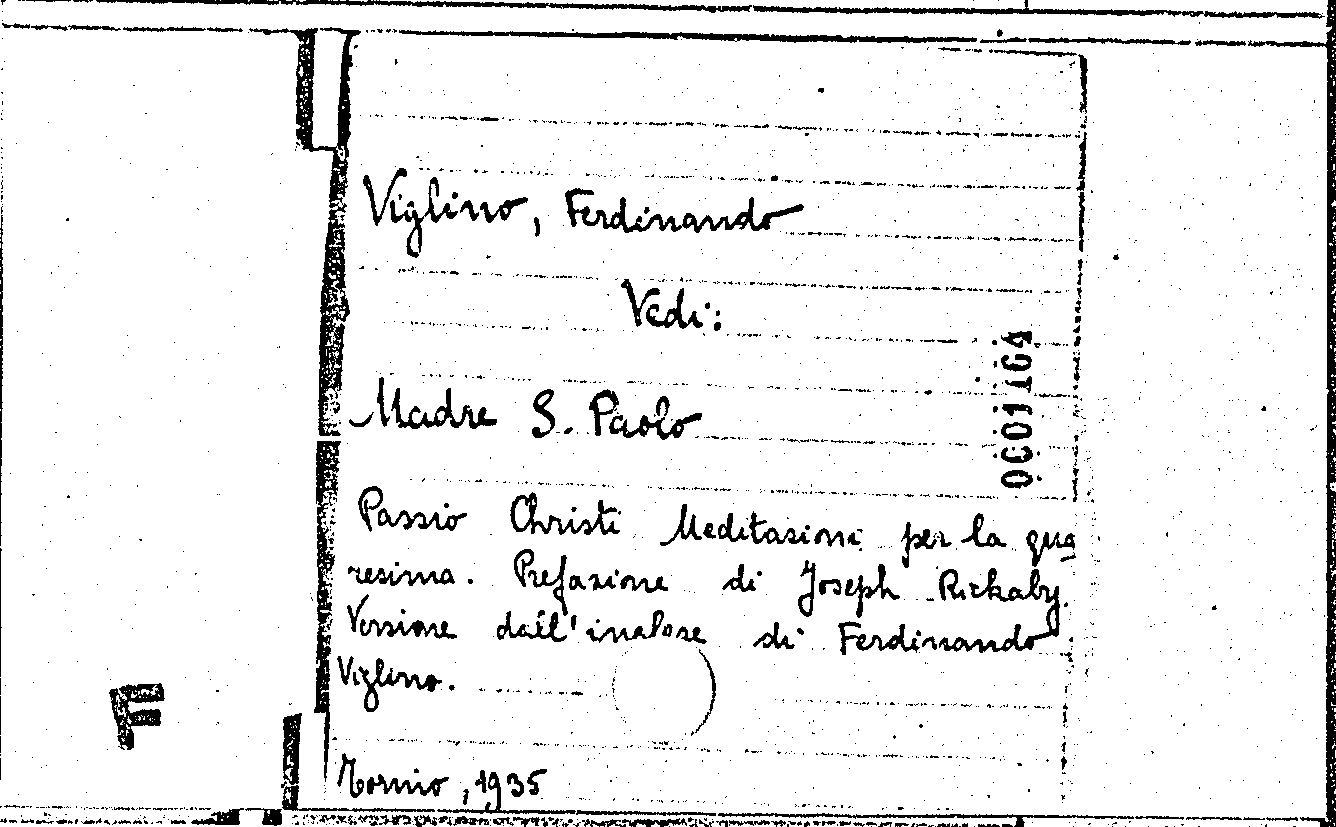 Viglino, Ferdinando
Vedi:
Madre S. Paolo
0001164
Passio Christi Meditasioni per la qua
resima. Prefazione di Joseph Rickaby.
Versione dall'inalese di Ferdinando
Viglino.
F
Tornio, 1935